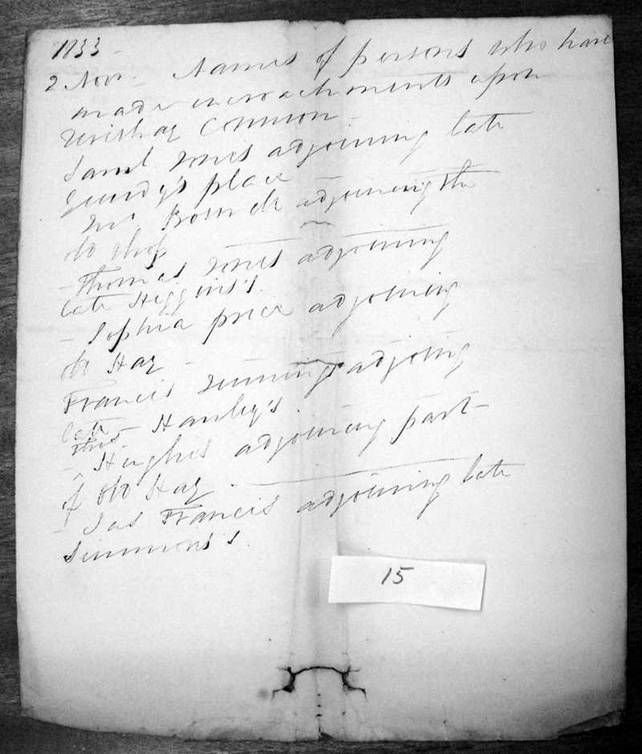 1833 -
2 Nov. - Names of persons who have
made encroachments upon
Common -
Saml Jones adjoining late
Gundy's place -
Mr adjoining the
old shop
- Thomas Jones adjoining
late Higgins's.
- Sophia price adjoining
old Hay -
Francis adjoing
late Hanley's
Thos.
- Hughes adjoining part -
of old Hay .
- Jas Francis adjoining late
Simmons's.
15